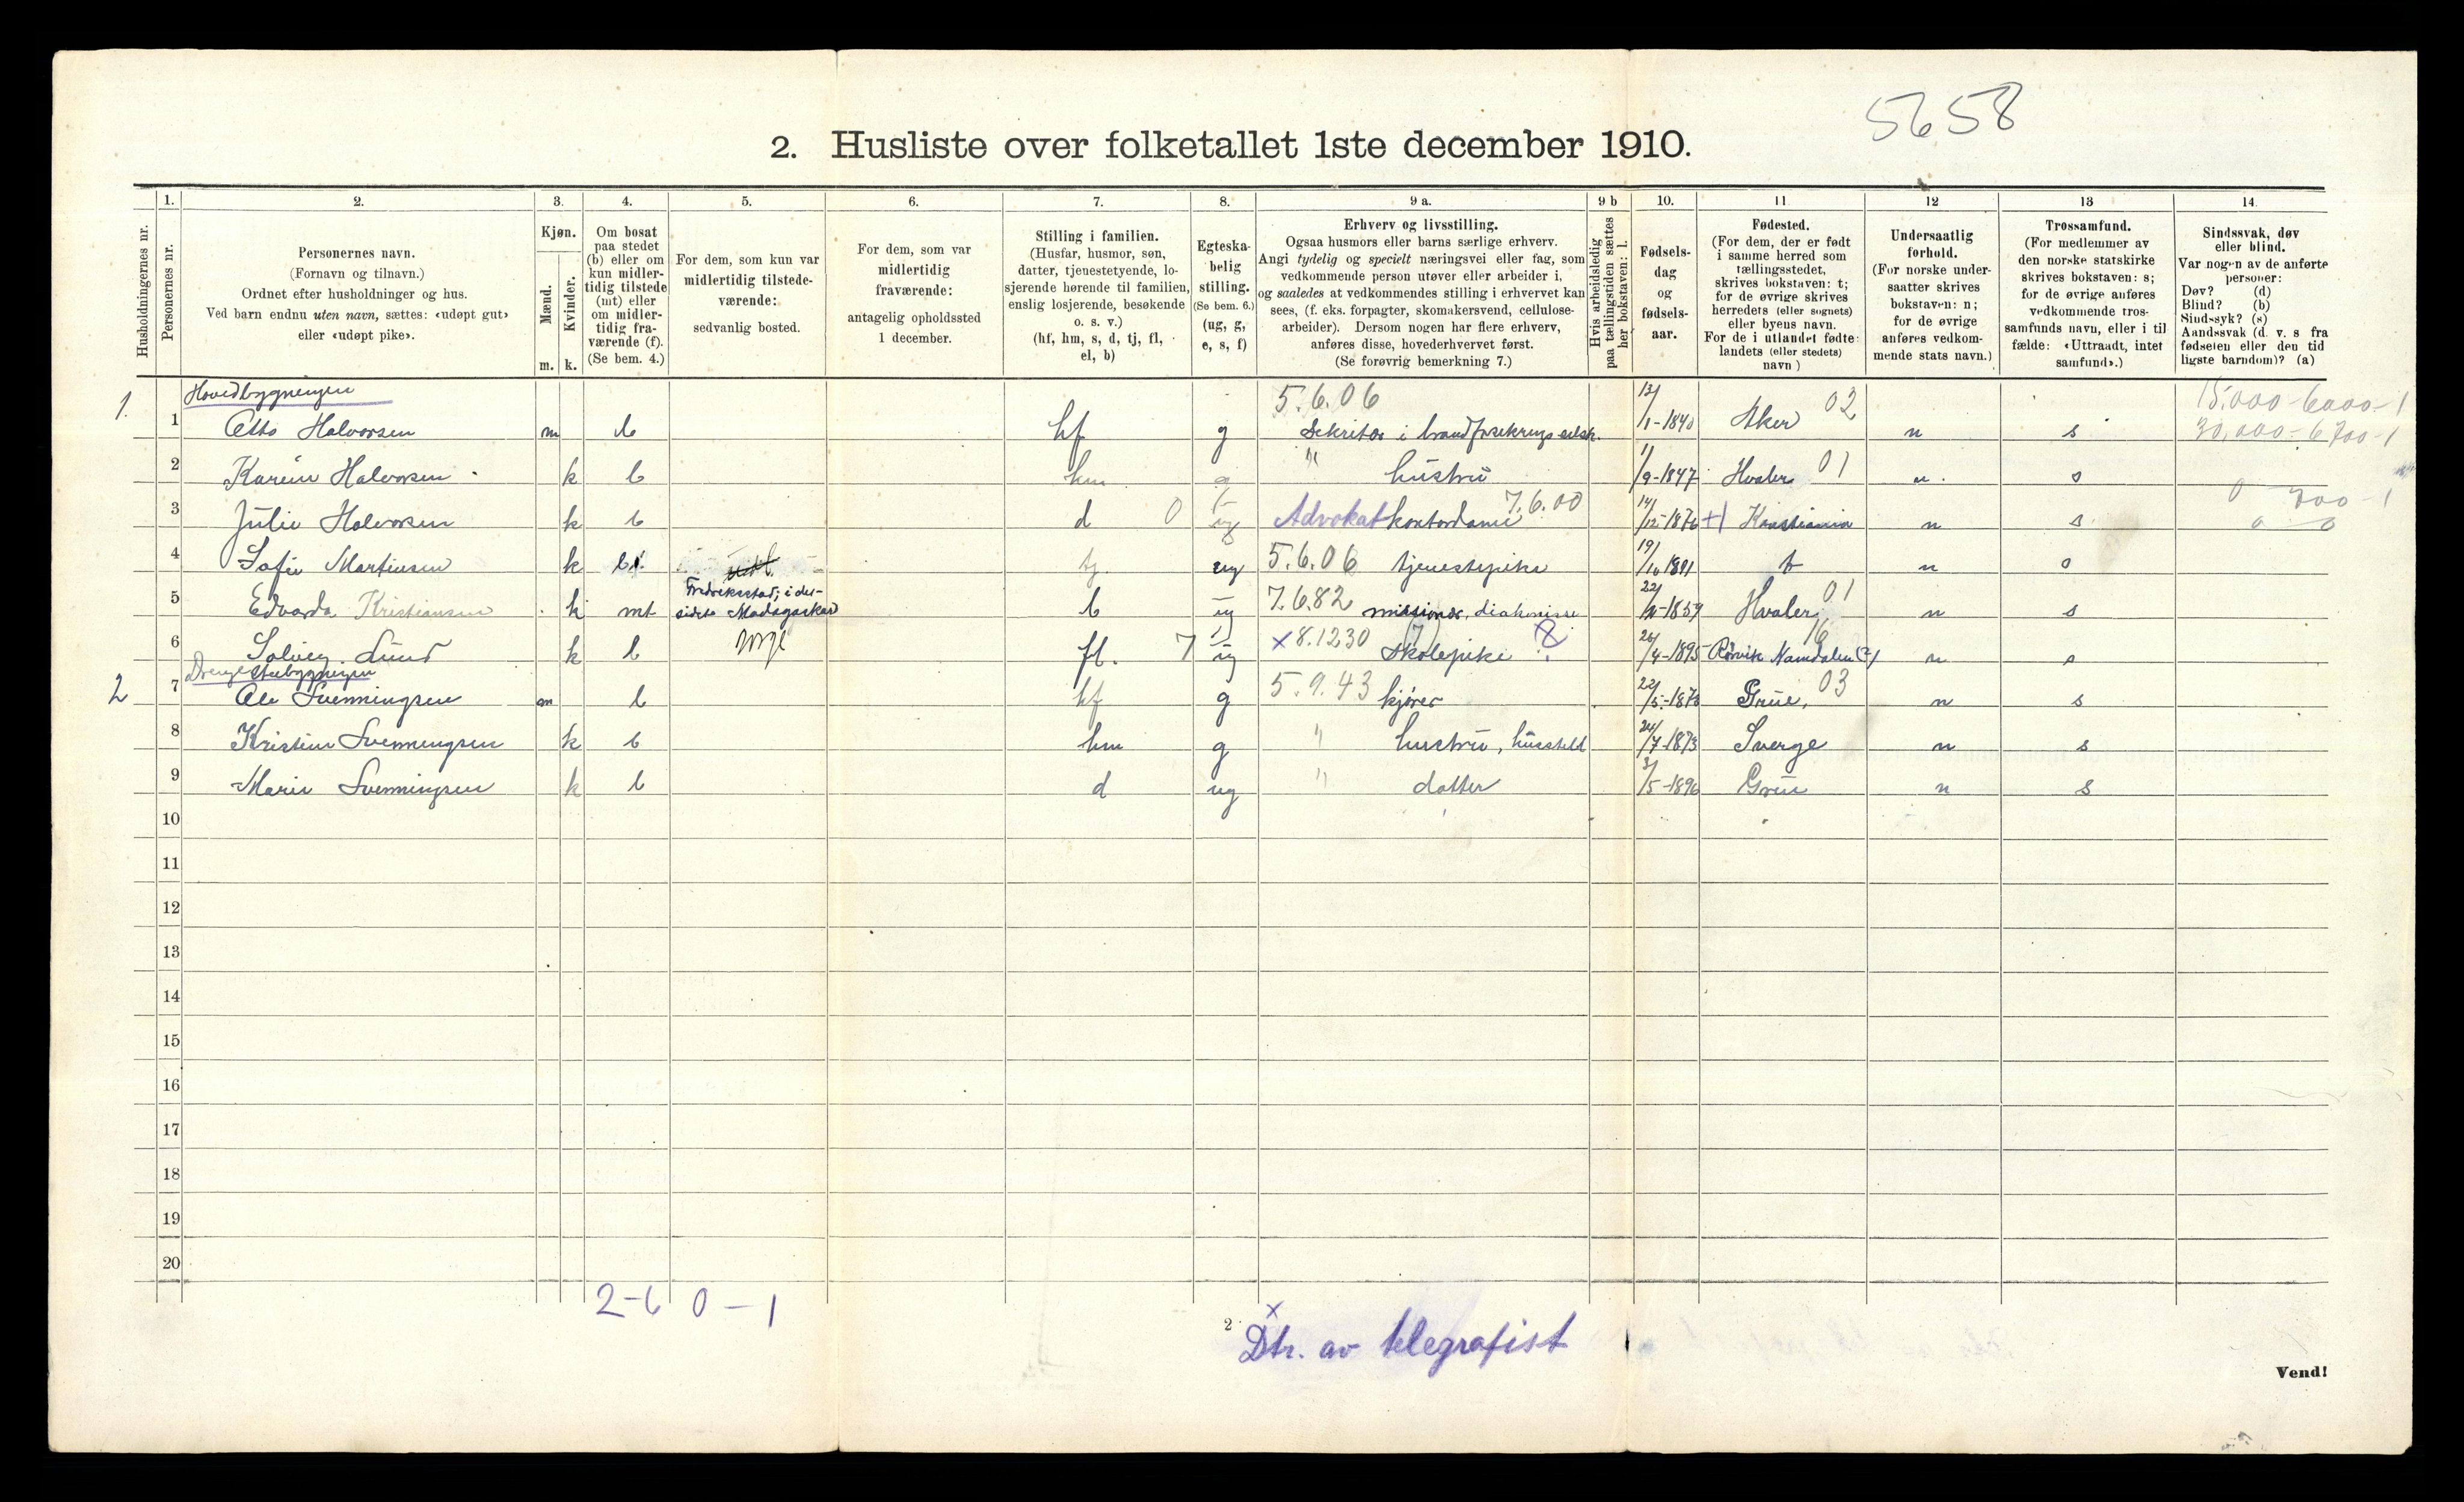 5658
2. Husliste over folketallet 1ste december 1910.
Husholdningernes nr.
1.
Personernes nr.
2.
Personernes navn.
(Fornavn og tilnavn.)
Ordnet efter husholdninger og hus.
Ved barn endnu uten navn, sættes: «udøpt gut»
eller «udøpt pike».
3.
Kjøn.
Mænd.
Kvinder.
m. k.
4.
Om bosat
paa stedet
(b) eller om
kun midler-
tidig tilstede
(mt) eller
om midler-
tidig fra-
værende (f).
(Se bem. 4.)
5.
For dem, som kun var
midlertidig tilstede-
værende:
sedvanlig bosted.
6.
For dem, som var
midlertidig
fraværende:
antagelig opholdssted
1 december.
7.
Stilling i familien.
(Husfar, husmor, søn,
datter, tjenestetyende, lo-
sjerende hørende til familien,
enslig losjerende, besøkende
o. s. v.)
(hf, hm, s, d, tj, fl,
el, b)
8.
Egteska-
belig
stilling.
(Se bem. 6.)
(ug, g,
e, s, f)
9 a.
Erhverv og livsstilling.
Ogsaa husmors eller barns særlige erhverv.
Angi tydelig og specielt næringsvei eller fag, som
vedkommende person utøver eller arbeider i,
og saaledes at vedkommendes stilling i erhvervet kan
sees, (f. eks. forpagter, skomakersvend, cellulose-
arbeider). Dersom nogen har flere erhverv,
anføres disse, hovederhvervet først.
(Se forøvrig bemerkning 7.)
9 b
Hvis arbeidsledig
paa tællingstiden sættes
her bokstaven: l.
10.
Fødsels-
dag
og
fødsels-
aar.
11
Fødested.
(For dem, der er født
i samme herred som
tællingsstedet,
skrives bokstaven: t;
for de øvrige skrives
herredets (eller sognets)
eller byens navn.
For de i utlandet fødte:
landets (eller stedets)
navn)
12
Undersaatlig
forhold.
(For norske under-
saatter skrives
bokstaven: n;
for de øvrige
anføres vedkom-
mende stats navn.)
13
Trossamfund.
(For medlemmer av
den norske statskirke
skrives bokstaven: s;
for de øvrige anføres
vedkommende tros-
samfunds navn, eller i til
fælde: «Uttraadt, intet
samfund».)
14.
Sindssvak, døv
eller blind.
Var nogen av de anførte
personer:
Døv? (d)
Blind? (b)
Sindssyk? (s)
Aandssvak (d. v. s fra
fødselen eller den tid
ligste barndom)? (a)
Hovedbygningen 5.6.06 02 15.000-6000-1
1. 1 Otto Halvorsen m b hf g Sekritær i brandforsekrings selsk. 13/1-1840 Aker n s 30,000-6700-1
2 Karein Halvorsen k b hm g " hustru 1/9-1847 Hvaler 01 n s
0 700-1
3 Julie Halvorsen k b d 0 ug Advokat kontordame 7.6.00 14/12-1876 +1 Kristiania n s 0 0
4 Sofie Martinsen k b tj. ug 5.6.06 tjenestepike 19/10 1891 t n s
Fredriksstad; i des-
5 Edvarda Kristiansen k mt sidste Madagaskar b ug 7.6.82 missionær, diakonisse 22/ -1859 Hvaler 01 n s
6 Solveig Lund k b Norge fl. 7 ug x 8.1230 (7) skolepike 26/4-1895 Rørvik Namdalen (?) 16 n s
Drengestuebygningen
2 7 Ole Svenningsen m b hf g 5.9.43 kjører 22/5-1873 Grue, 03 n s
8 Kristine Svenningsen k b hm g " hustru, husstell 24/7-1873 Sverge n s
9 Marie Svenningsen k b d ug " datter 3/5-1896 Grue n s
10
11
12
13
14
15
16
17
18
19
20
2-6 0-1
2 x Dtr. av telegrafist
Vend!